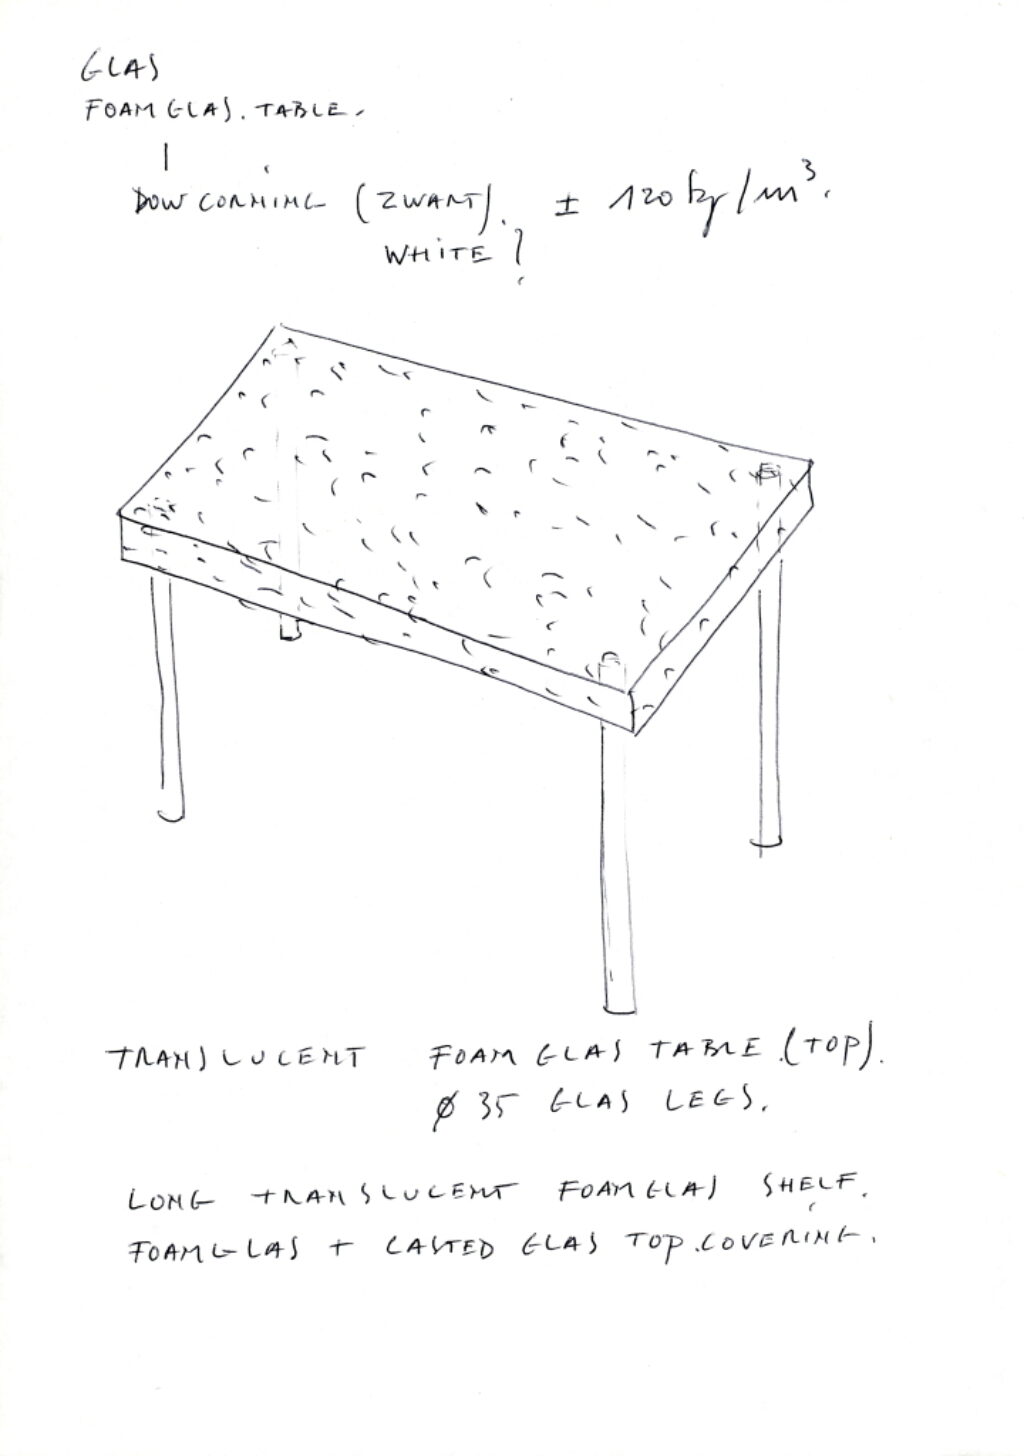 GLAS
FOAM GLAS. TABLE.
DOW CORNING (ZWART). ± 120 kg/m³.
WHITE?
TRANSLUCENT FOAM GLAS TABLE.(TOP).
ø 35 GLAS LEGS.
LONG TRANSLUCENT FOAMGLAS SHELF.
FOAMGLAS + CASTED GLAS TOP.COVERING.